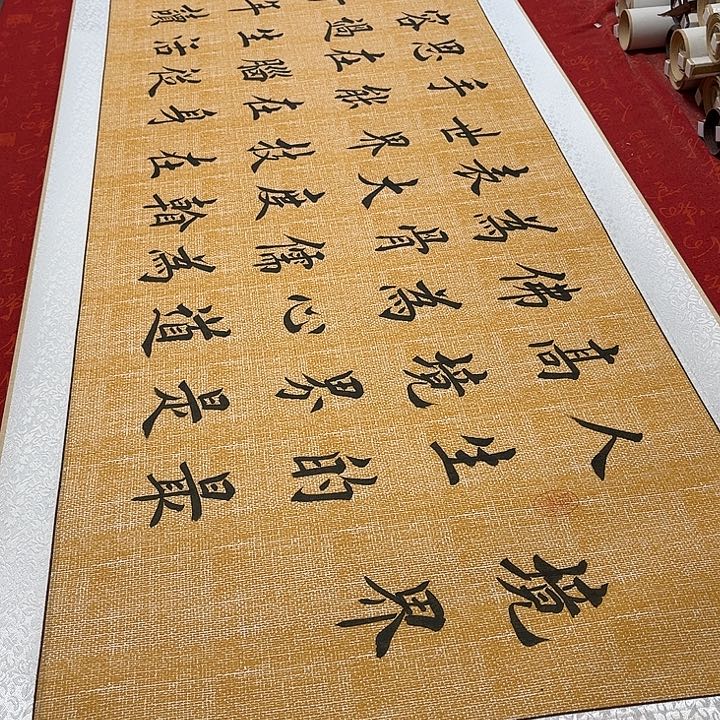 境界
人生的最
高境界是
佛為心道
為骨儒為
表大度看
世界技在
手能在身
思在腦從
容過生活
年讀